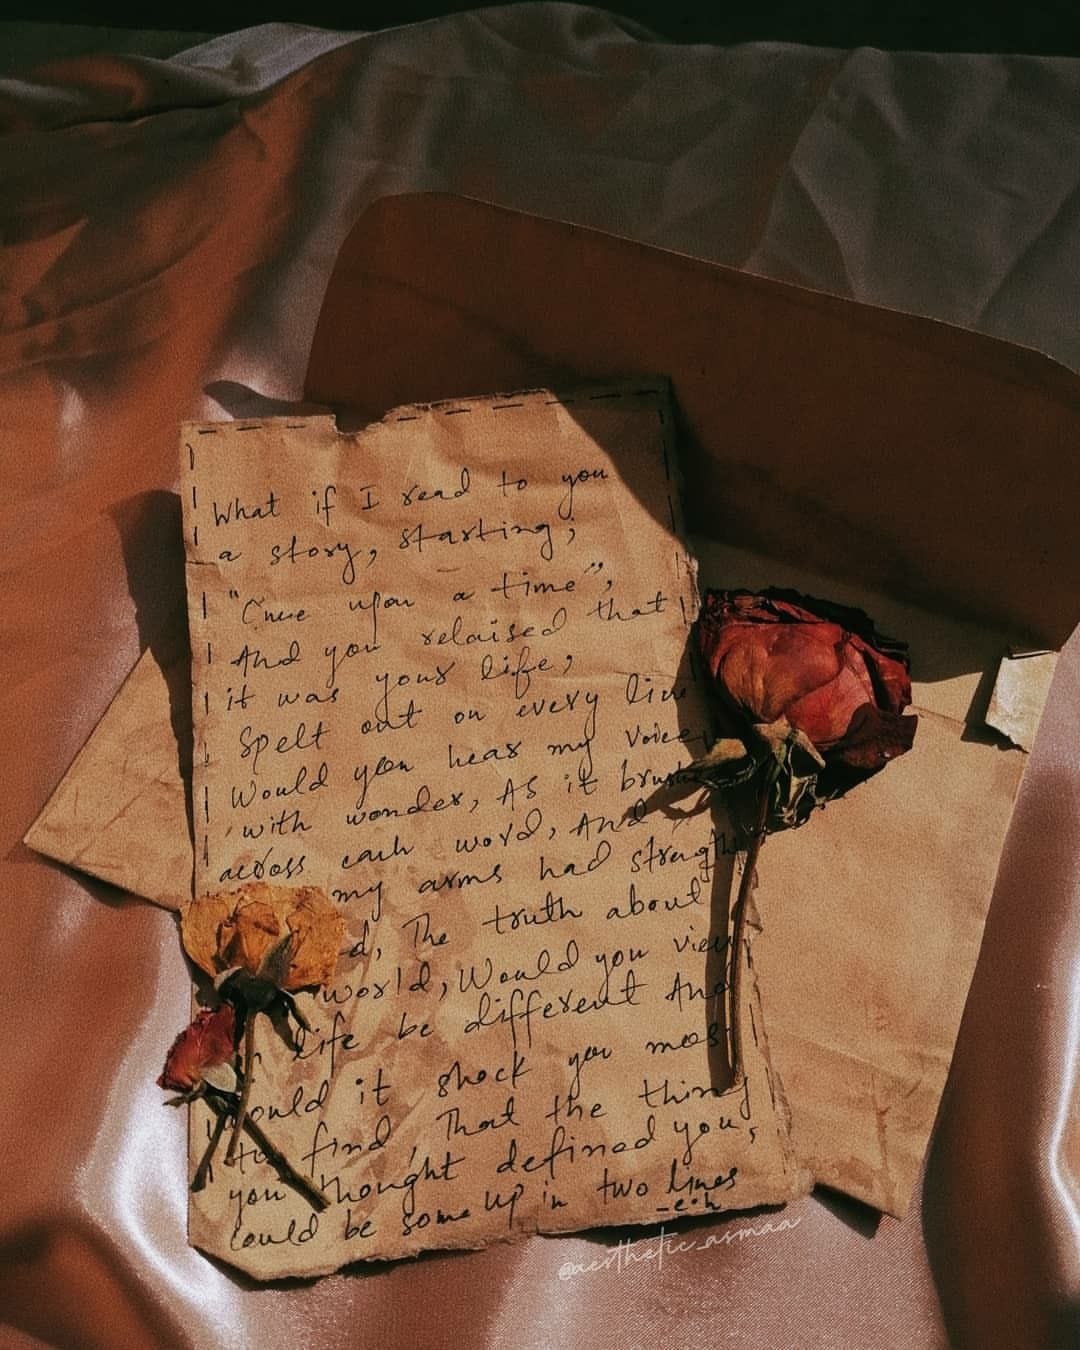 What if I read to you
a story, starting;
"Once upon a time",
And you relaised that
it was your life,
Spelt out on every line
Would you hear my voice
with wonder, As it brushe
across each word, And
my arms had strength
d, The truth about
world, Would you view
life be different And
would it shock you mos
to find, That the thing
you thought defined you,
could be some up in two lines
-e.h
@aesthetic_asmaa